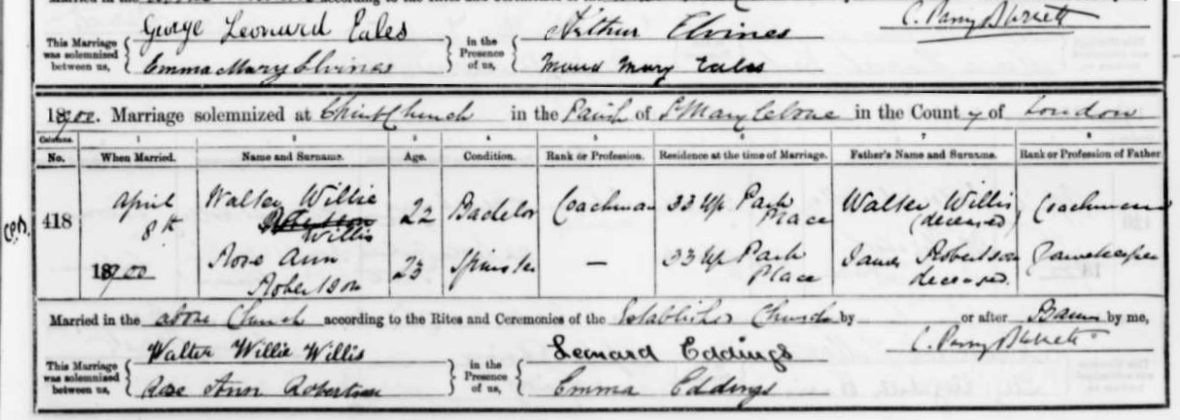 George Leonard Eales
Arthur Elvines
This Marriage was solemnized between us,
in the Presence of us,
Emma Mary Elvines
Maud Mary Eales
1900. Marriage solemnized at Christ Church in the Parish of St Marylebone in the County of London
Columns. 1 2 3 4 5 6 7 8
No. When Married. Name and Surname. Age. Condition. Rank or Profession. Residence at the time of Marriage. Father's Name and Surname. Rank or Profession of Father
418 April 8th 1900 Walter Willie Willis 22 Bachelor Coachman 33 Up Park Place Walter Willis (deceased) Coachman
Rose Ann Robertson 23 Spinster — 33 Up Park Place James Robertson deceased Gamekeeper
Married in the above Church according to the Rites and Ceremonies of the Established Church by or after Banns by me,
This Marriage was solemnized between us,
Walter Willie Willis
Rose Ann Robertson
in the Presence of us,
Leonard Eddings
Emma Eddings